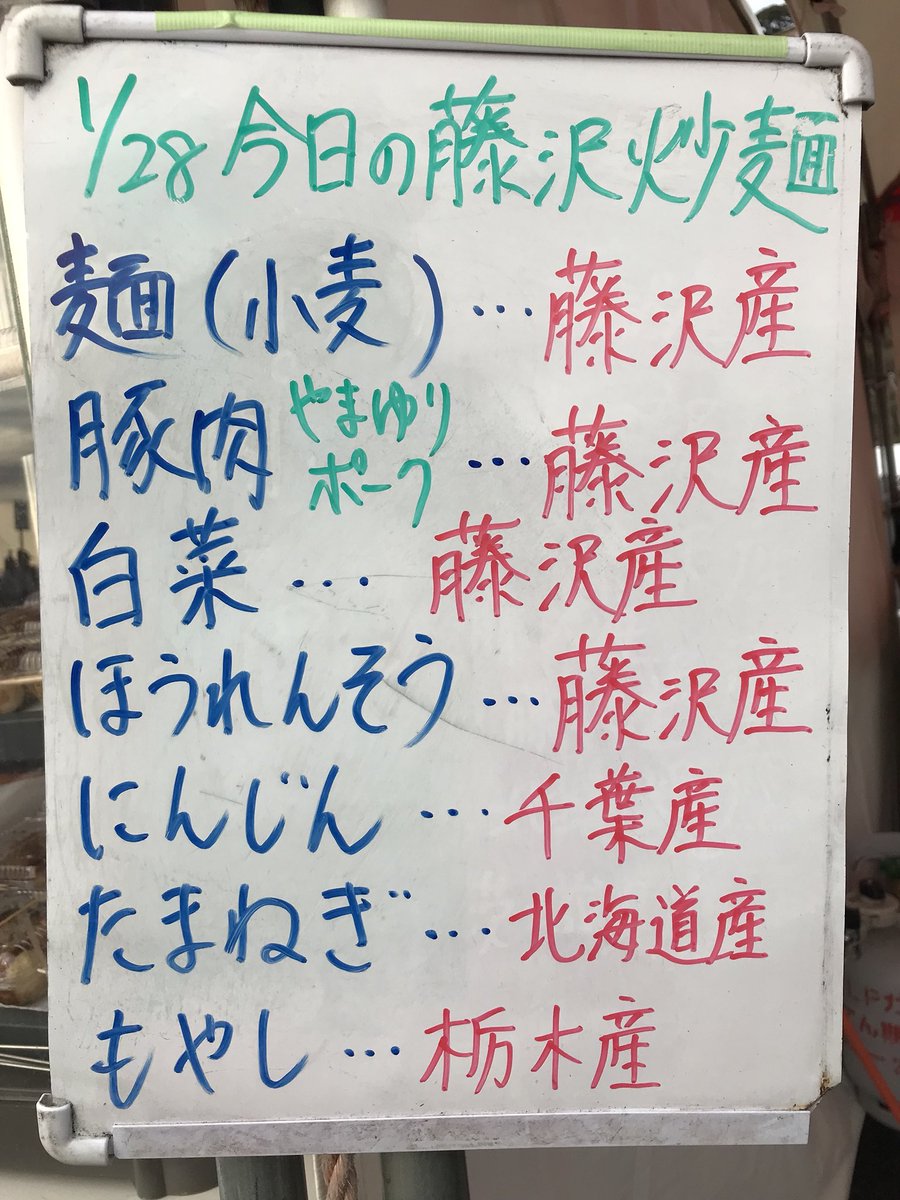 1/28 今日の藤沢炒麺
麺(小麦)…藤沢産
豚肉 やまゆりポーク …藤沢産
白菜…藤沢産
ほうれんそう…藤沢産
にんじん…千葉産
たまねぎ…北海道産
もやし…栃木産